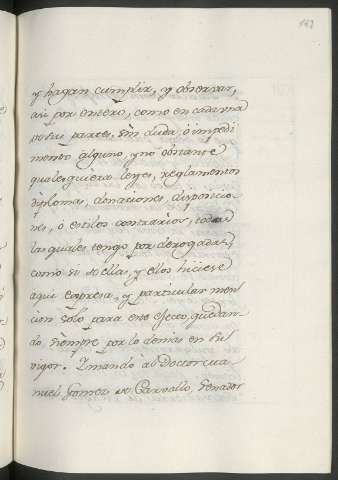 162
y hagan cumplir, y observar,
asi por entero, como en cada una
de sus partes, sin duda, ó impedi
mento alguno, y nó obstante
qualesquiera leyes, reglamentos
diplomas, donaciones, disposicio
nes, ó estilos contrarios, todas
las quales tengo por derogadas,
como si de ellas, y ellos hiciese
aqui expresa, y particular men
cion solo para este efecto, quedan
do siempre por lo demas en su
vigor. Y mando al Doctor Ma
nuel Gomez de Carvallo, Senador